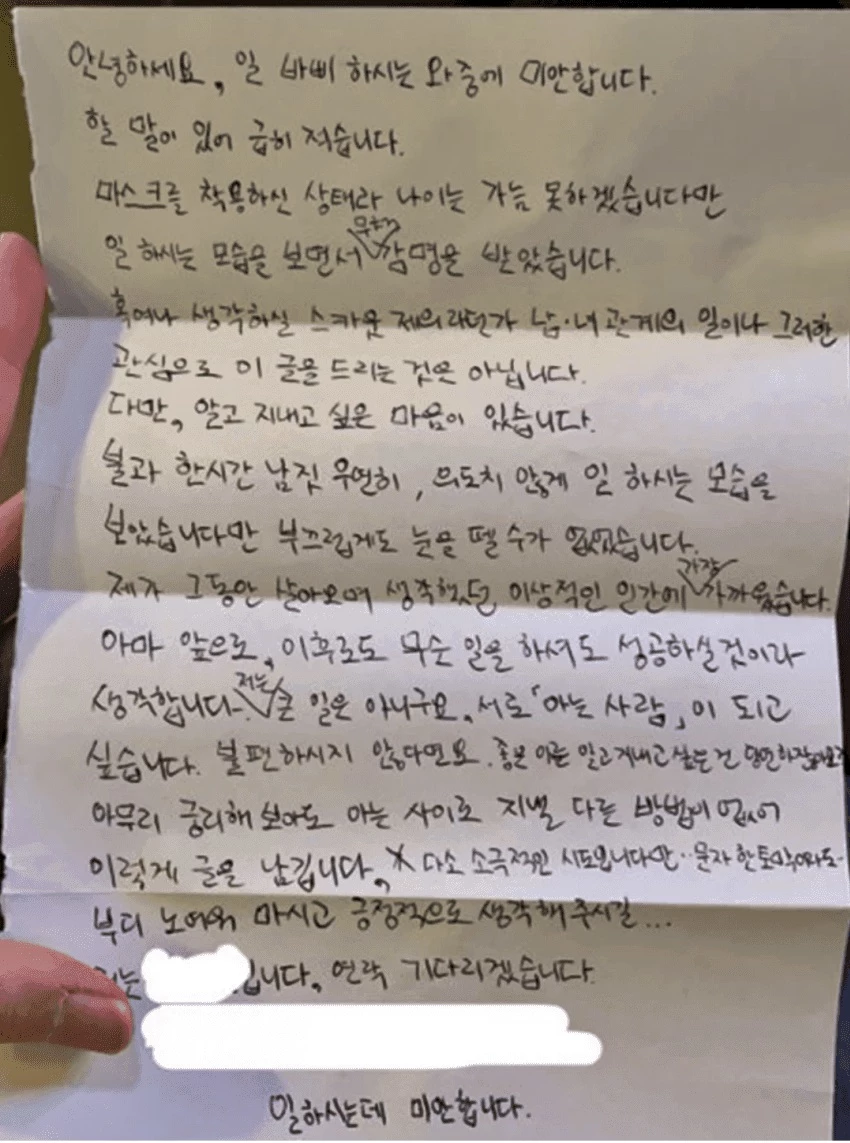 안녕하세요, 일 바삐 하시는 와중에 미안합니다.
할 말이 있어 급히 적습니다.
마스크를 착용하신 상태라 나이는 가늠 못하겠습니다만
일 하시는 모습을 보면서 무척 감명을 받았습니다.
혹여나 생각하실 스카웃 제의라던가 남·녀 관계의 일이나 그러한
관심으로 이 글을 드리는 것은 아닙니다.
다만, 알고 지내고 싶은 마음이 있습니다.
불과 한시간 남짓 우연히, 의도치 않게 일 하시는 모습을
보았습니다만 부끄럽게도 눈을 뗄 수가 없었습니다.
제가 그동안 살아오며 생각했던 이상적인 인간에 가장 가까웠습니다.
아마 앞으로, 이후로도 무슨 일을 하셔도 성공하실 것이라
생각합니다. 저는 큰 일은 아니구요, 서로 「아는 사람」이 되고
싶습니다. 불편하시지 않다면요. 좋은 이를 알고 지내고 싶은 건 당연하잖아요?
아무리 궁리해 보아도 아는 사이로 지낼 다른 방법이 없어
이렇게 글을 남깁니다, 다소 소극적인 시도입니다만.. 문자 한 토막이라도-
부디 노여워 마시고 긍정적으로 생각해 주시길...
저는 입니다, 연락 기다리겠습니다.
일하시는데 미안합니다.